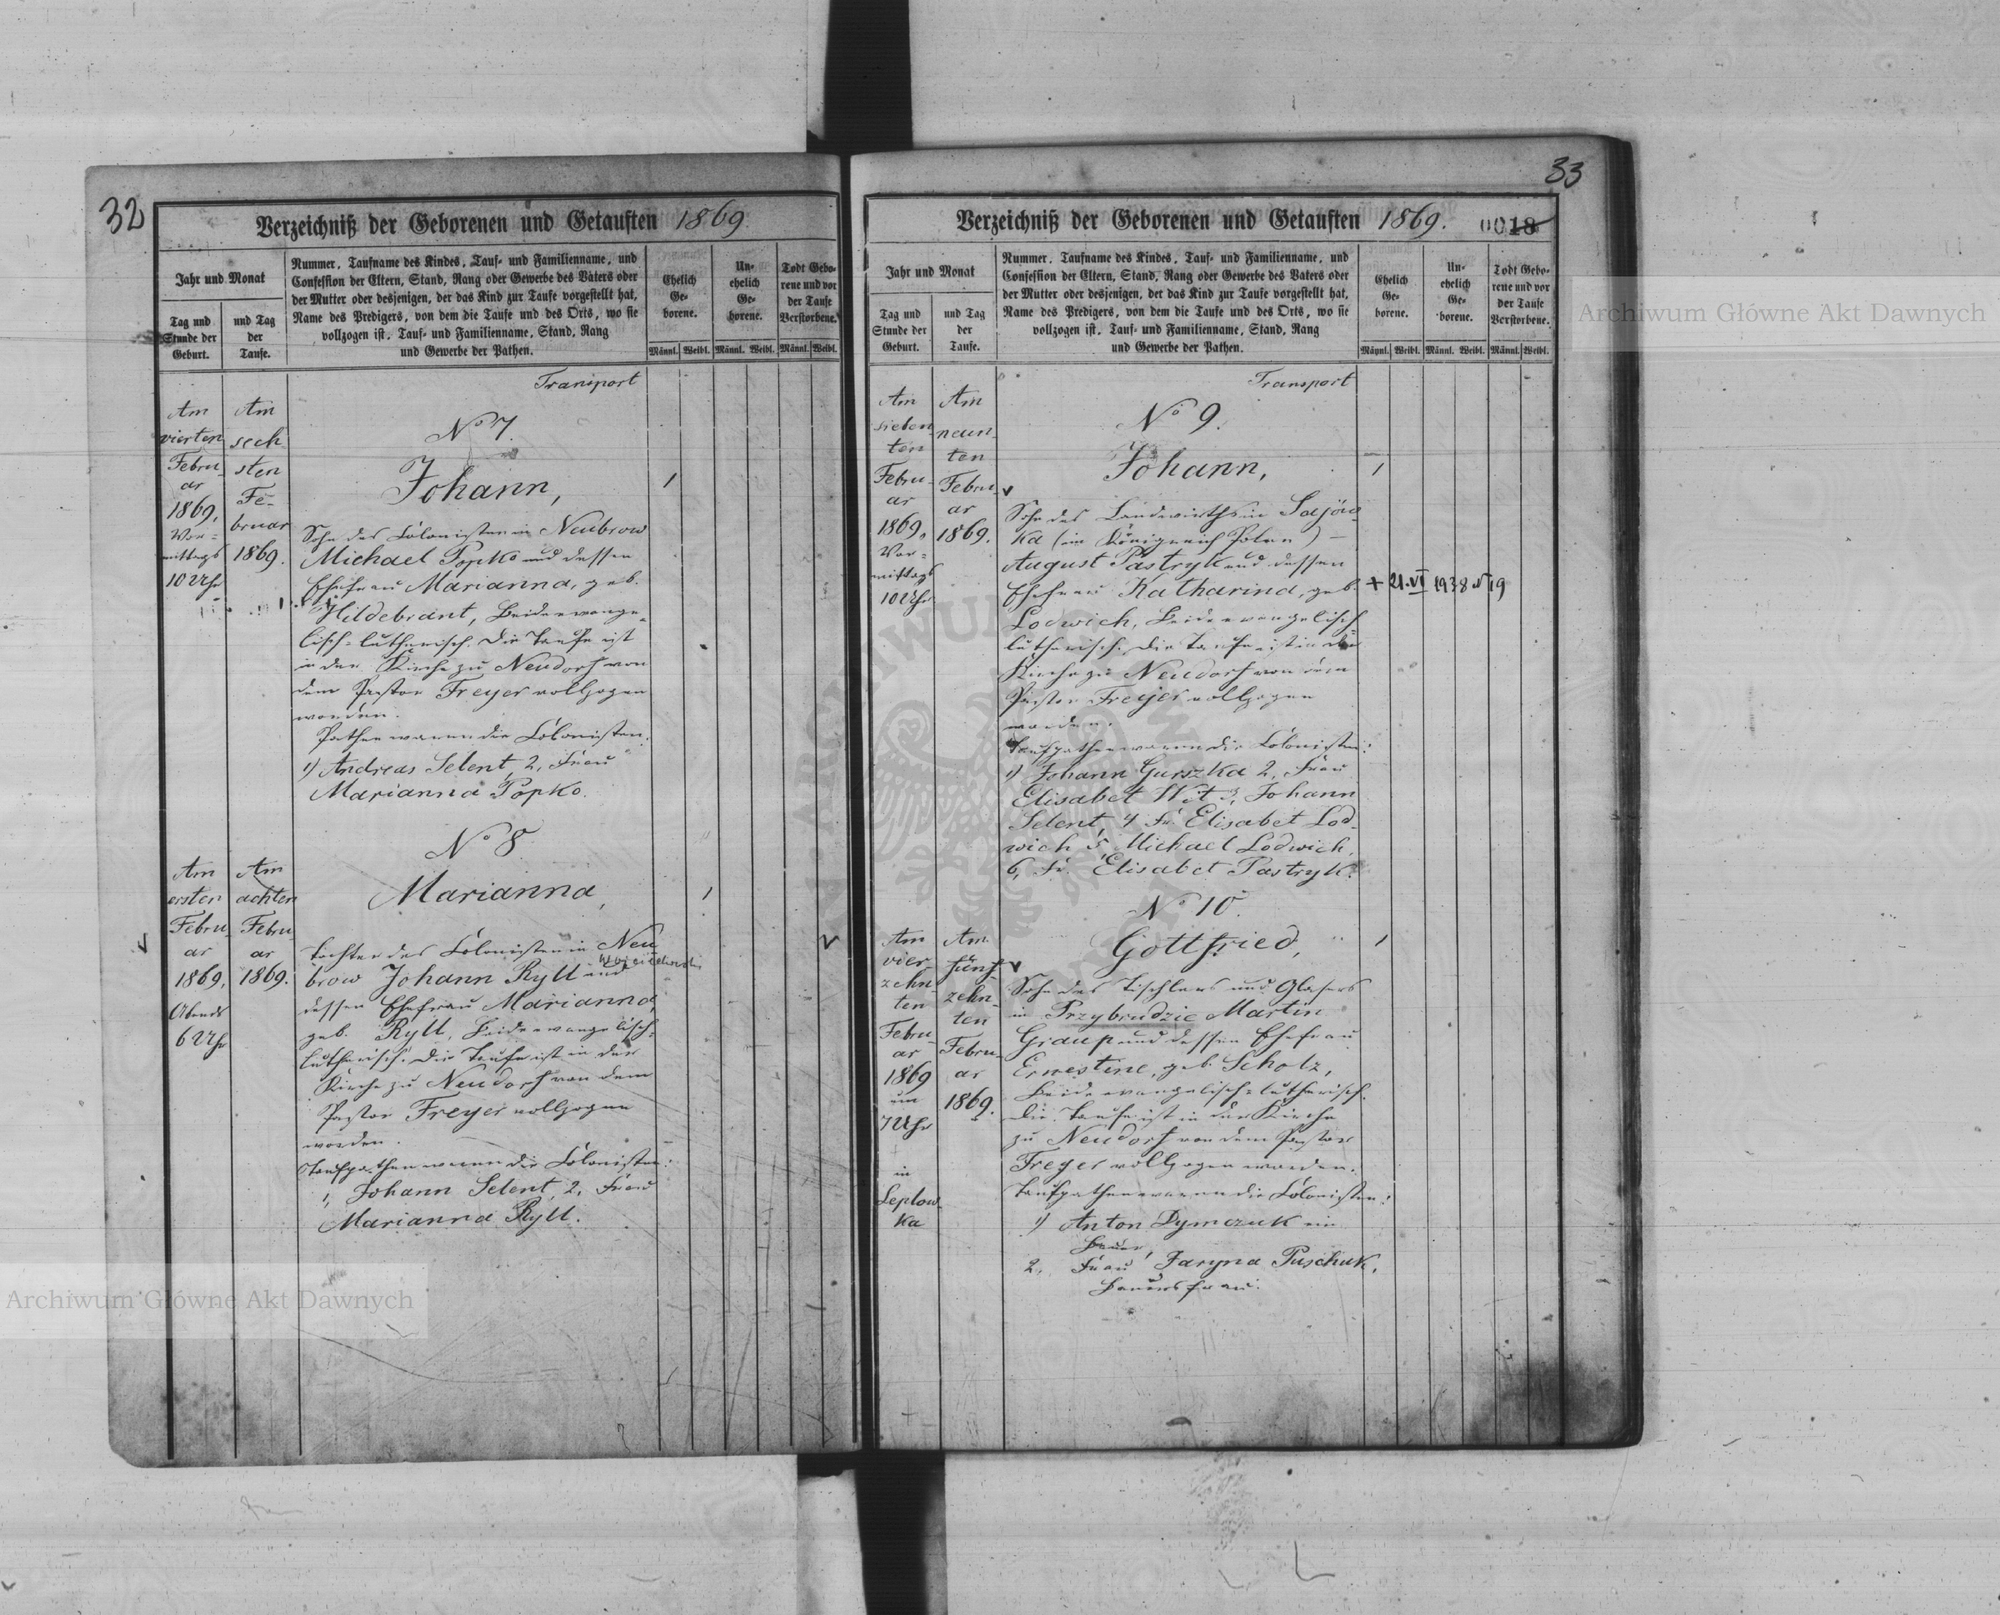 32
Verzeichniß der Geborenen und Getauften 1869.
Jahr und Monat
Tag und
Stunde der
Geburt.
und Tag
der
Taufe.
Nummer, Taufname des Kindes, Tauf- und Familienname, und
Confession der Eltern, Stand, Rang oder Gewerbe des Vaters oder
der Mutter oder desjenigen, der das Kind zur Taufe vorgestellt hat,
Name des Predigers, von dem die Taufe und des Orts, wo sie
vollzogen ist. Tauf- und Familienname, Stand, Rang
und Gewerbe der Pathen.
Ehelich
Ge-
borene.
Un-
ehelich
Ge-
borene.
Todt Gebo-
rene und vor
der Taufe
Verstorbene.
Männl. Weibl. Männl. Weibl. Männl. Weibl.
Transport
Am
vierten
Febru-
ar
1869,
Vor-
mittags
10 Uhr
Am
sech
sten
Fe-
bruar
1869.
No 7.
Johann,
1
Sohn des Colonisten in Neubrow
Michael Popko und dessen
Ehefrau Marianna, geb.
Hildebrant, Beide evange-
lisch-lutherisch. Die Taufe ist
in der Kirche zu Neudorf von
dem Pastor Freyer vollzogen
worden.
Pathen waren die Colonisten:
1) Andreas Selent, 2, Frau
Marianna Popko.
Am
ersten
Febru-
ar
1869,
Abends
6 Uhr
Am
achten
Febru-
ar
1869.
No 8
Marianna,
1
Tochter des Colonisten in Neu
brow Johann Ryll und
dessen Ehefrau Marianna,
geb. Ryll, Beide evangelisch-
lutherisch. Die Taufe ist in der
Kirche zu Neudorf von dem
Pastor Freyer vollzogen
worden.
Taufpathen waren die Colonisten:
1, Johann Selent, 2, Frau
Marianna Ryll.
33
Verzeichniß der Geborenen und Getauften 1869.
0018
Jahr und Monat
Tag und
Stunde der
Geburt.
und Tag
der
Taufe.
Nummer, Taufname des Kindes, Tauf- und Familienname, und
Confession der Eltern, Stand, Rang oder Gewerbe des Vaters oder
der Mutter oder desjenigen, der das Kind zur Taufe vorgestellt hat,
Name des Predigers, von dem die Taufe und des Orts, wo sie
vollzogen ist. Tauf- und Familienname, Stand, Rang
und Gewerbe der Pathen.
Ehelich
Ge-
borene.
Un-
ehelich
Ge-
borene.
Todt Gebo-
rene und vor
der Taufe
Verstorbene.
Männl. Weibl. Männl. Weibl. Männl. Weibl.
Transport
Am
sieben
ten
Febru-
ar
1869,
Vor-
mittags
10 Uhr
Am
neun-
ten
Febru-
ar
1869.
No 9.
Johann,
1
Sohn des Landwirths in
ka (im Königreich Polen) –
August Pastryk und dessen
Ehefrau Katharina, geb.
+ 21.VI 1938 N 19
Lodwich, Beide evangelisch
lutherisch. Die Taufe ist in der
Kirche zu Neudorf von dem
Pastor Freyer vollzogen
worden.
Taufpathen waren die Colonisten:
1) Johann Gurszka 2, Frau
Elisabet Wit 3, Johann
Selent, 4 Fr. Elisabet Lod-
wich 5 Michael Lodwich,
6, Fr. Elisabet Pastryk.
Am
vier
zehn
ten
Febru-
ar
1869
um
7 Uhr
in
Leplow-
ka
Am
fünf
zehn-
ten
Febru-
ar
1869.
No 10.
Gottfried,
1
Sohn des Tischlers und Glasers
in Przybrudzie Martin
Graup und dessen Ehefrau
Ernestine, geb. Scholz,
Beide evangelisch-lutherisch.
Die Taufe ist in der Kirche
zu Neudorf von dem Pastor
Freyer vollzogen worden.
Taufpathen waren die Colonisten:
1) Anton Dymczuk ein
Bauer,
2, Frau Jaryna Puschuk,
Bauersfrau.
Archiwum Główne Akt Dawnych
Archiwum Główne Akt Dawnych